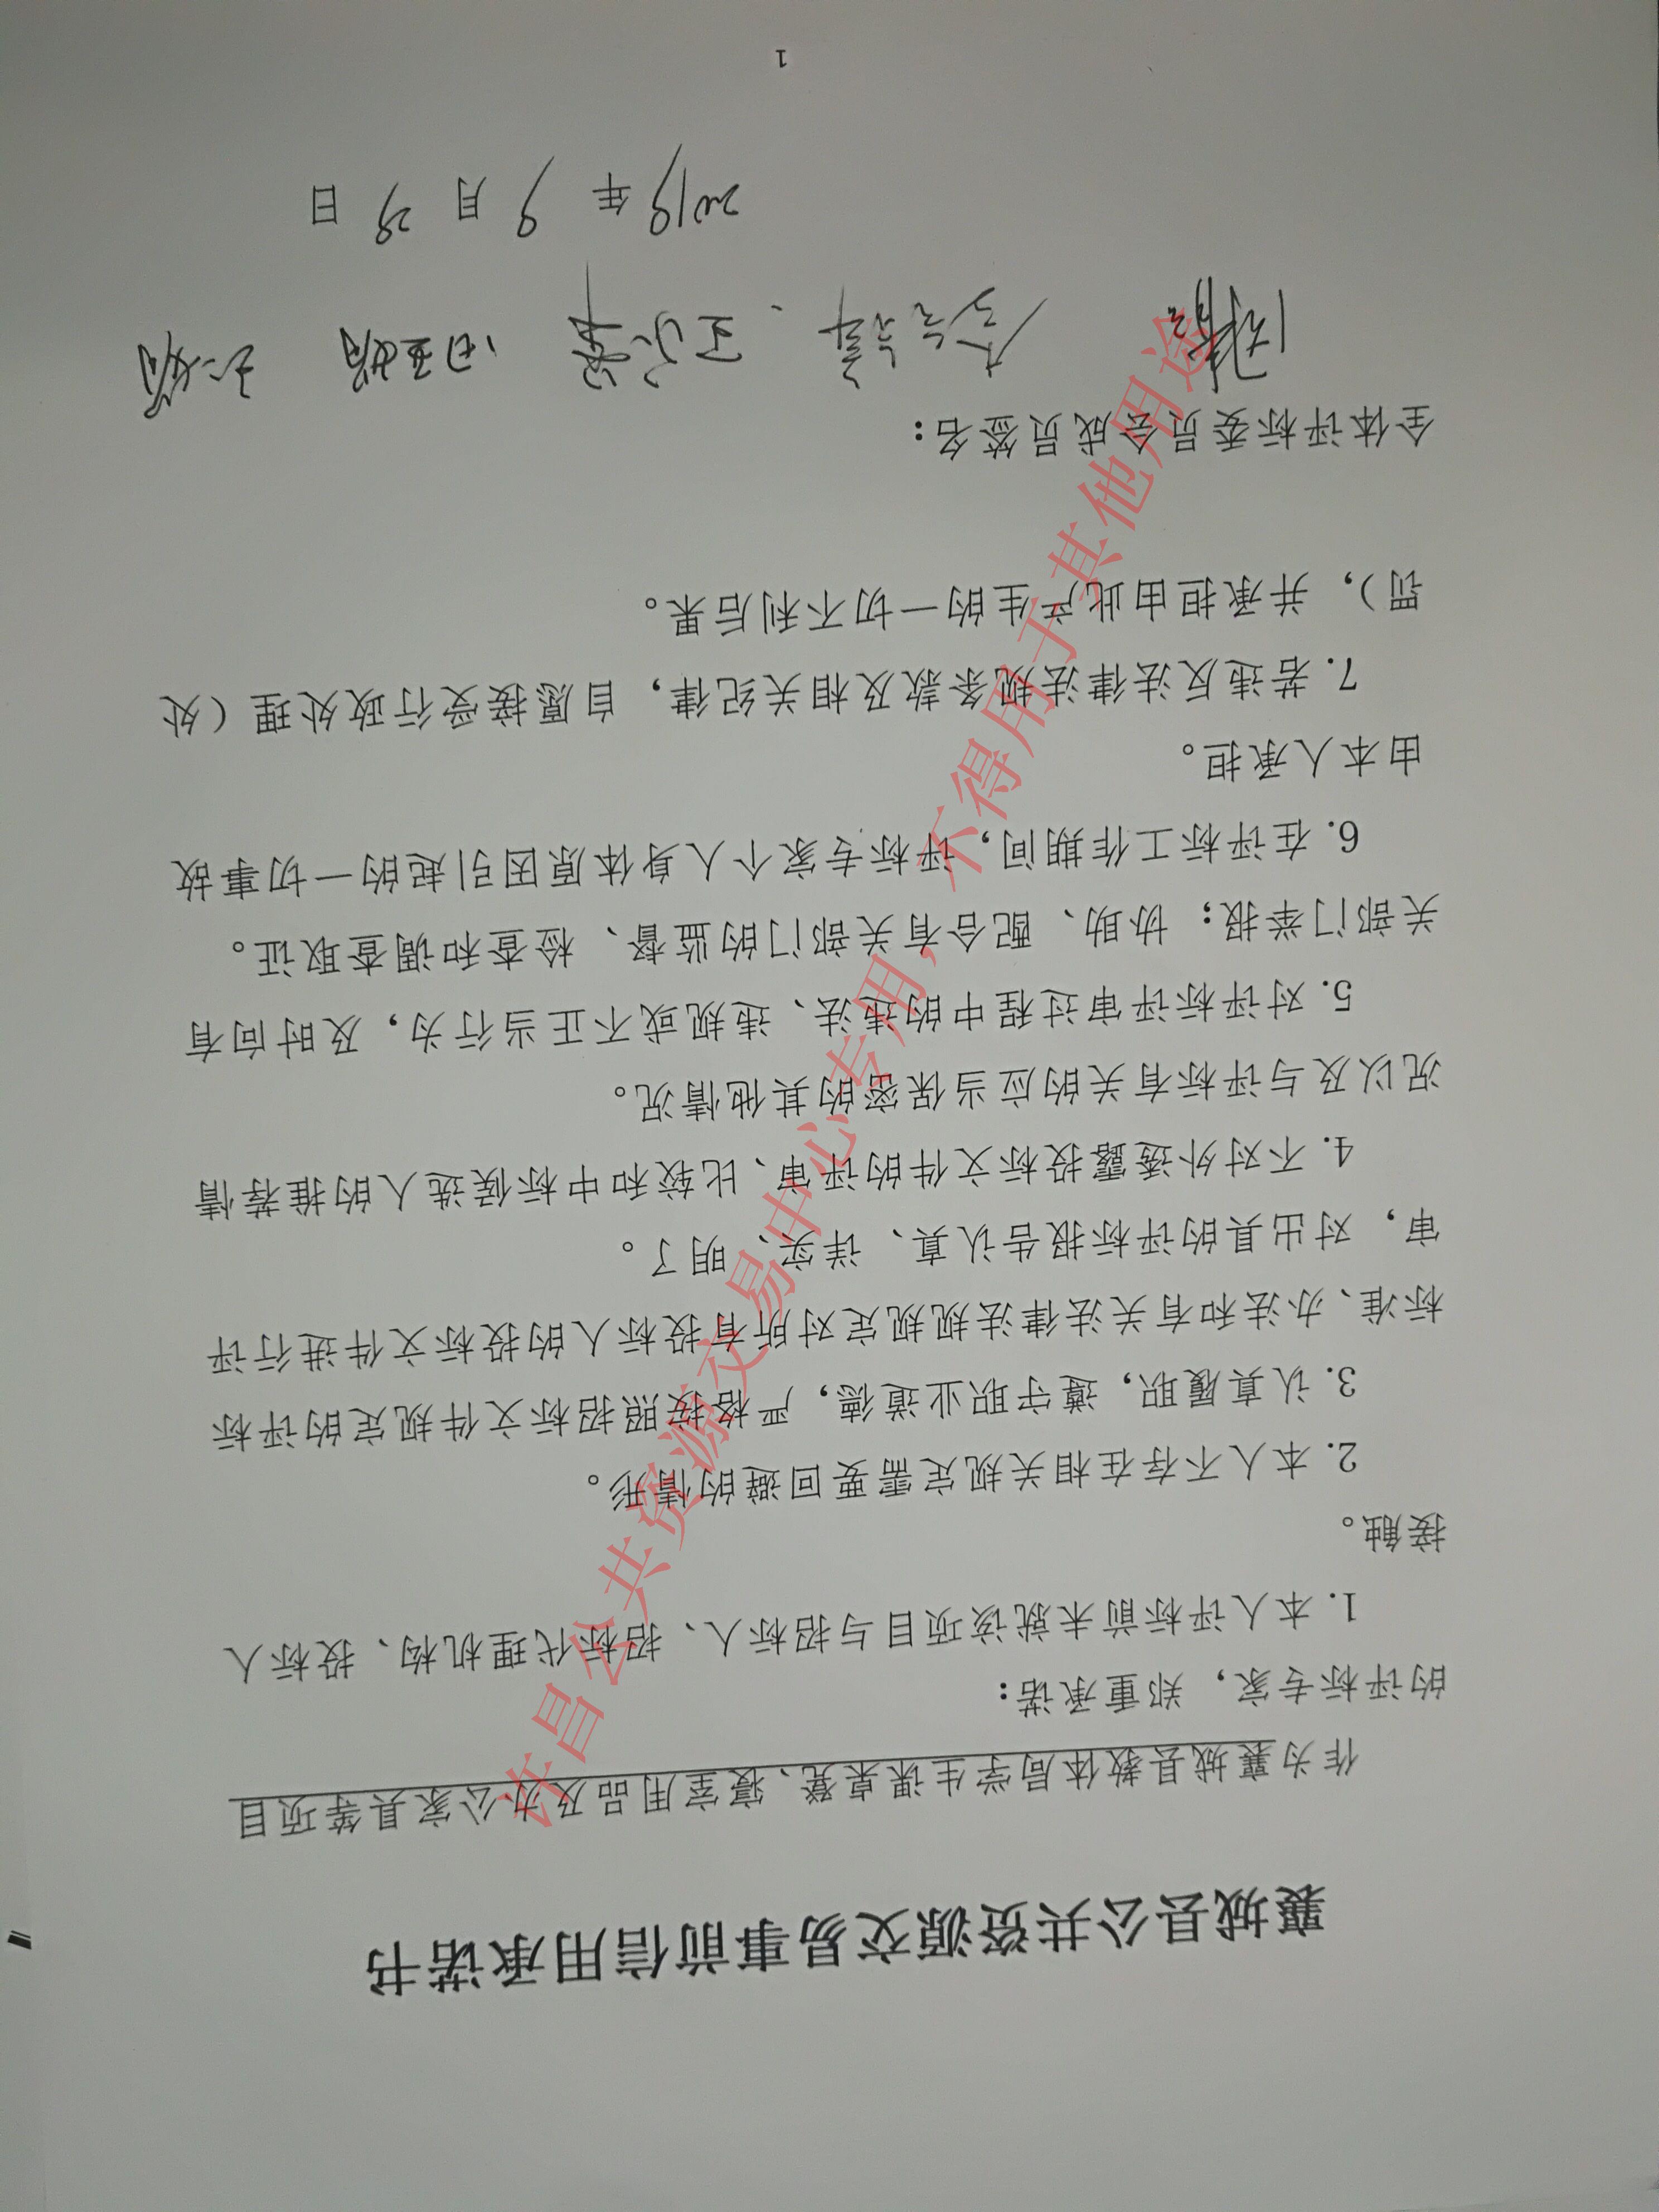 襄城县公共资源交易事前信用承诺书
作为襄城县教体局学生课桌凳、寝室用品及办公家具等项目
的评标专家，郑重承诺：
1. 本人评标前未就该项目与招标人、招标代理机构、投标人
接触。
2. 本人不存在相关规定需要回避的情形。
3. 认真履职，遵守职业道德，严格按照招标文件规定的评标
标准、办法和有关法律法规规定对所有投标人的投标文件进行评
审，对出具的评标报告认真、详实、明了。
4. 不对外透露投标文件的评审、比较和中标候选人的推荐情
况以及与评标有关的应当保密的其他情况。
5. 对评标评审过程中的违法、违规或不正当行为，及时向有
关部门举报；协助、配合有关部门的监督、检查和调查取证。
6. 在评标工作期间，评标专家个人身体原因引起的一切事故
由本人承担。
7. 若违反法律法规条款及相关纪律，自愿接受行政处理（处
罚），并承担由此产生的一切不利后果。
全体评标委员会成员签名：
2019年9月29日
1
许昌公共资源交易中心专用，不得用于其他用途